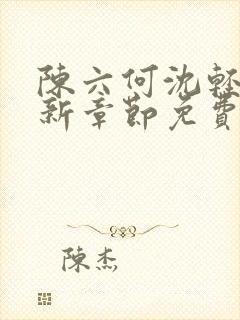 陳六何沈輕
新章節免費
陳杰